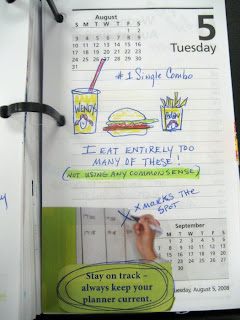 August
S M T W T F S
1 2
3 4 5 6 7 8 9
10 11 12 13 14 15 16
17 18 19 20 21 22 23
24 25 26 27 28 29 30
5
Tuesday
#1 Single Combo
WENDY'S
I EAT ENTIRELY TOO
MANY OF THESE!
(NOT USING ANY COMMON SENSE)
X X MARKS THE
SPOT
September
S M T W T F S
1 2 3 4 5 6
7 8 9 10 11 12 13
14 15 16 17 18 19 20
21 22 23 24 25 26 27
28 29 30
Stay on track –
always keep your
planner current.
Tuesday, August 5, 2008